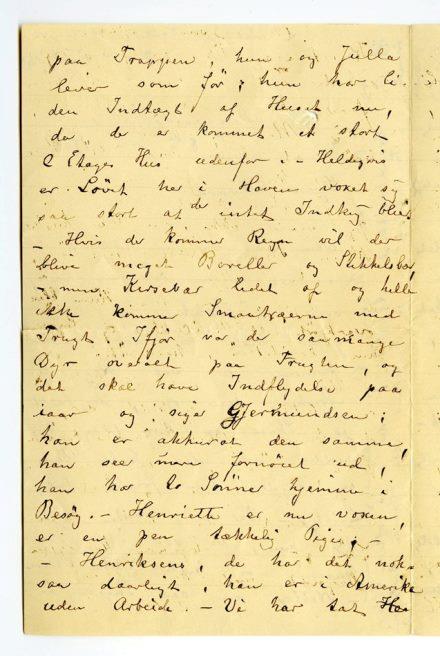 paa Trappen, hun og Julla
lever som før; hun har li-
den Indtægt af Huset nu,
da de er kommet et stort
2 Etages Hus udenfor i - Heldigvis
er Løvet her i Haven voxet sig
saa stort at de intet Indkig bliver
- Hvis der kommer Regn vil der
blive meget Poreller og Stikkelsbær
- men Kirsebær lidet af og heller
ikke kommer Smaatræerne med
Frugt. Ifjor var der saa mange
Dyr overalt paa Frugten, og
det skal have Indflydelse paa
iaar og siger Gjermundsen;
han er akkurat den samme,
han seer mere fornøiet ud,
han har to Sønner hjemme i
Besøg. - Henriette er nu voxen,
er en pen tækkelig Pige. -
- Henriksens, de har det nok-
saa daarligt, han er i Amerika
uden Arbeide. - Vi har tat